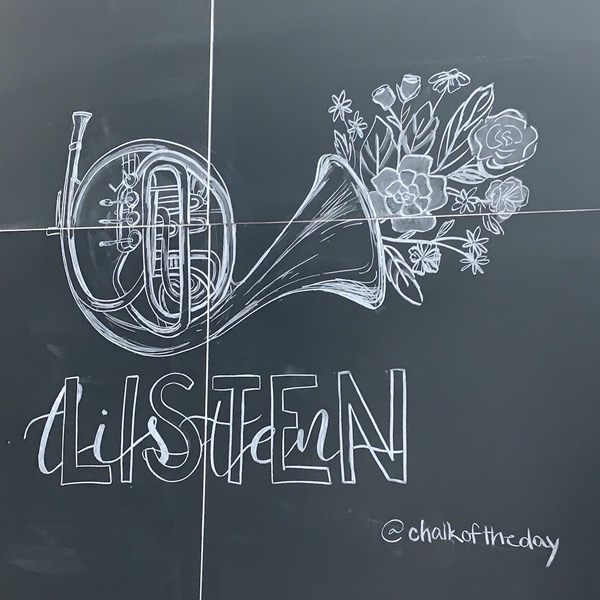 LISTEN
listen
@chalkoftheday